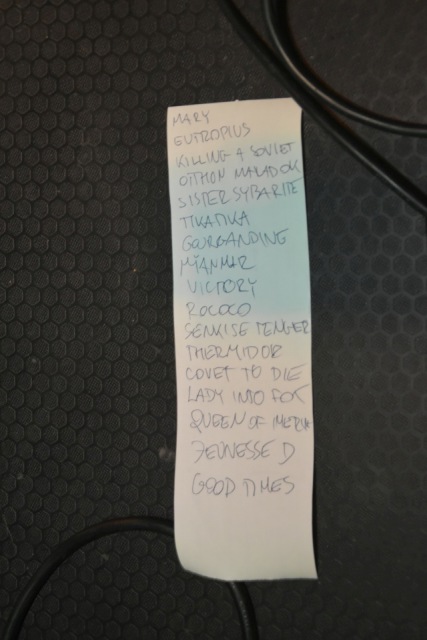 MARY
EUTROPIUS
KILLING A SOVIET
OTHON MATADOR
SISTER SYBARITE
TIKATIKA
GOURGANDINE
MÏANMAR
VICTORY
ROCOCO
SENKISE TENGER
THERMIDOR
COVET TO DIE
LADY INTO FOX
QUEEN OF
JEUNESSE D
GOOD TIMES